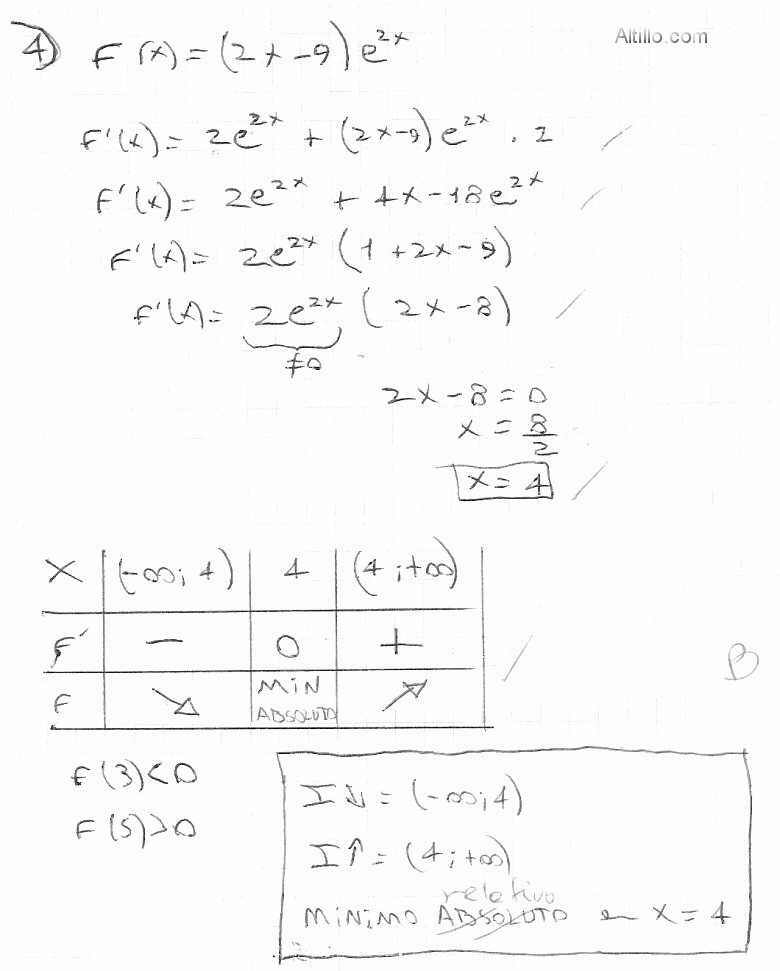 4) F(x) = (2x-9) e^2x
Altillo.com
F'(x) = 2e^2x + (2x-9) e^2x . 2
F'(x) = 2e^2x + 4x-18e^2x
F'(x) = 2e^2x (1+2x-9)
F'(x) = 2e^2x (2x-8)
≠0
2x-8 = 0
x = 8/2
x = 4
X (-∞; 4) 4 (4; +∞)
F' - 0 +
F ↘ MIN ABSOLUTO ↗
B
F(3)<0
F(5)>0
I↓ = (-∞; 4)
I↑ = (4; +∞)
relativo
MINIMO ABSOLUTO en X = 4